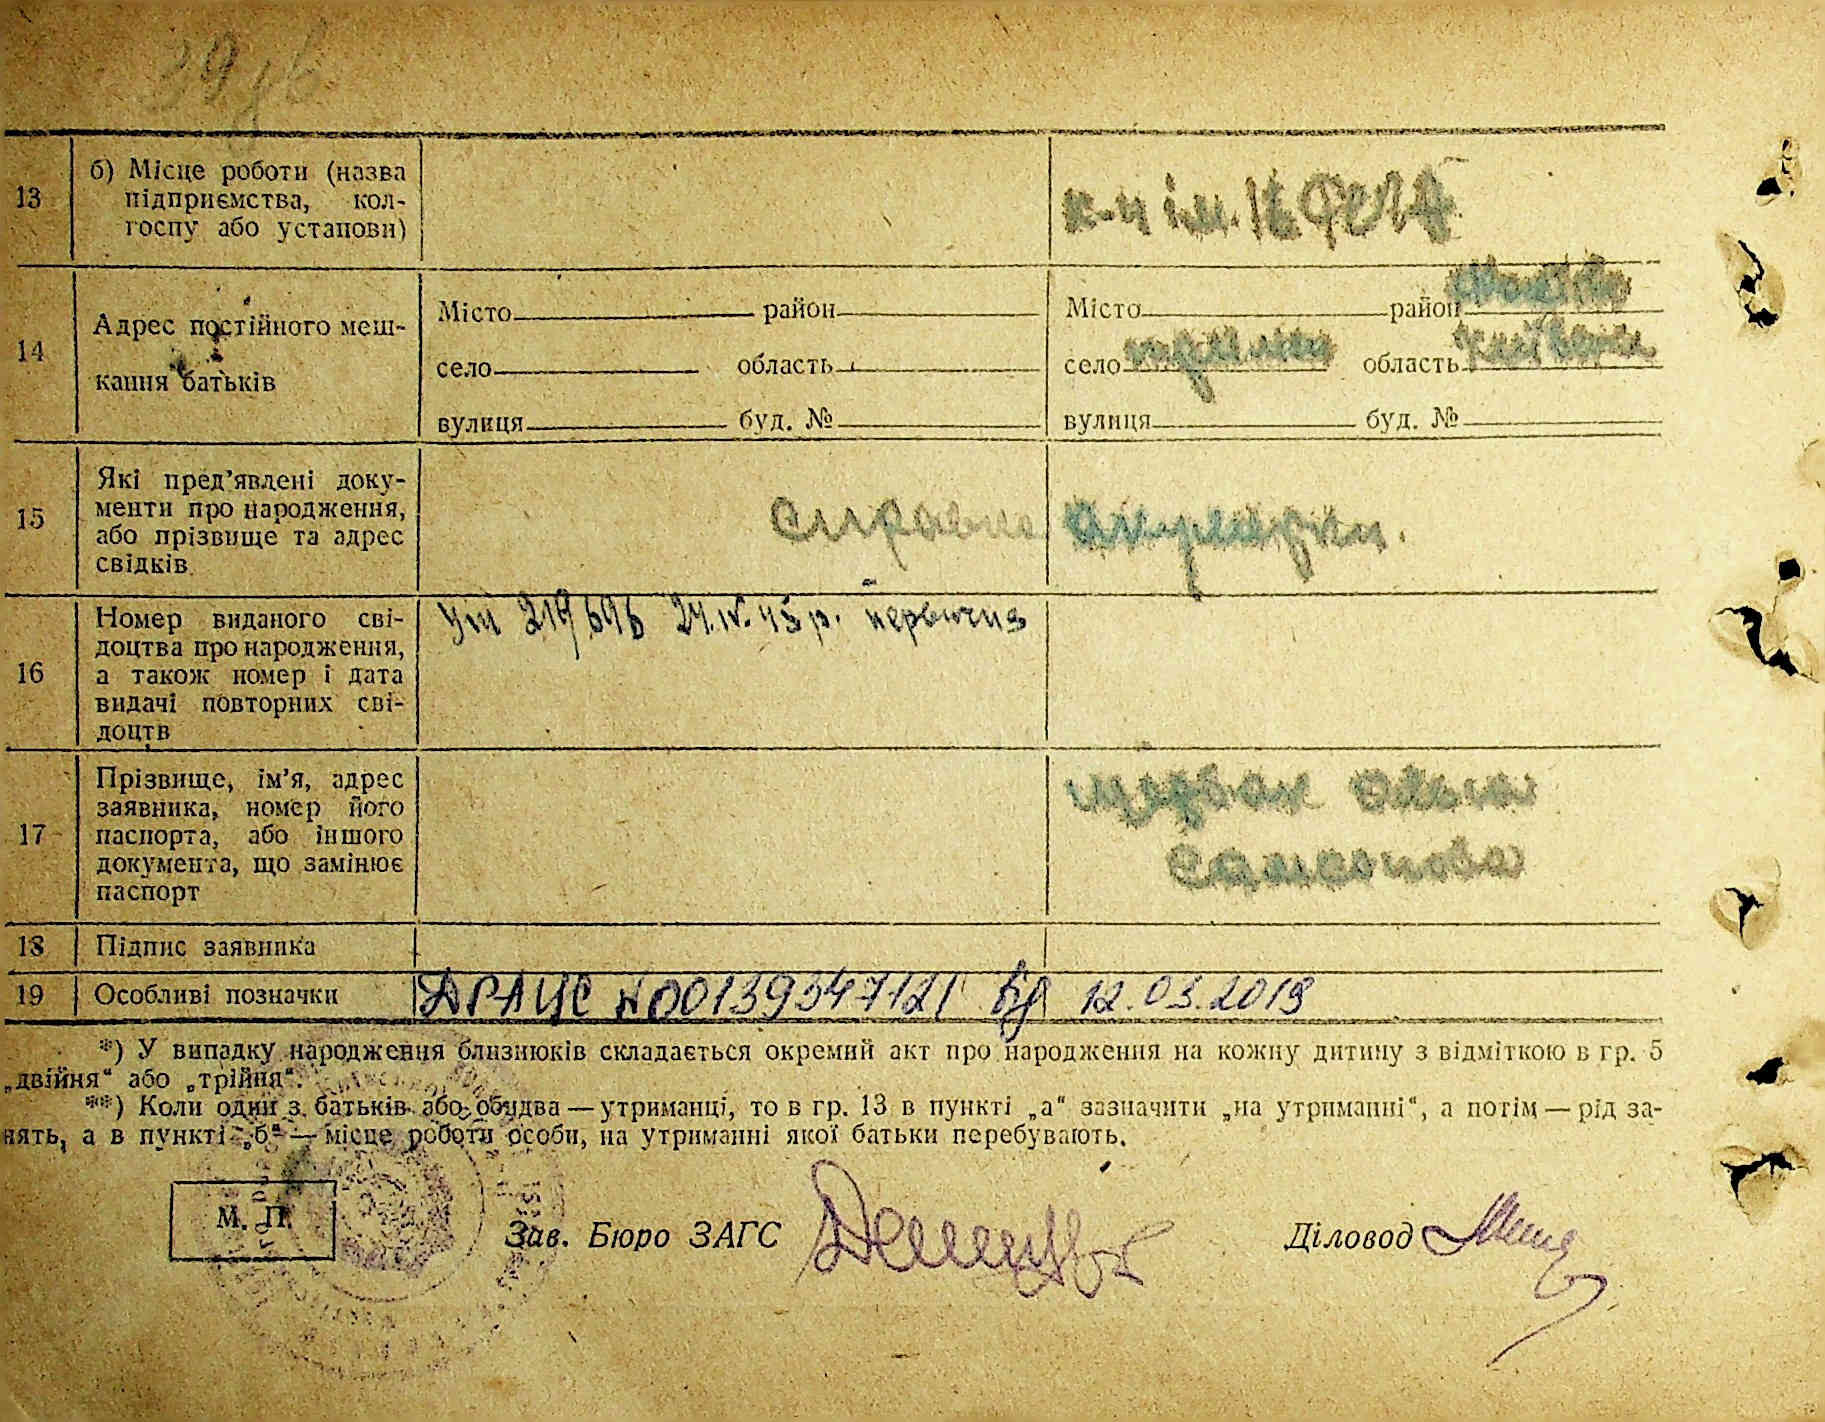 13
б) Місце роботи (назва
підприємства, кол-
госпу або установи)
к-п ім.
14
Адрес постійного меш-
кання батьків
Місто район
село область
вулиця буд. №
Місто район
село область
вулиця буд. №
15
Які пред’явлені доку-
менти про народження,
або прізвище та адрес
свідків.
справка
16
Номер виданого сві-
доцтва про народження,
а також номер і дата
видачі повторних сві-
доцтв
24.IV.45 р.
17
Прізвище, ім’я, адрес
заявника, номер його
паспорта, або іншого
документа, що замінює
паспорт
Самсонова
18
Підпис заявника
19
Особливі позначки
ДРАЦС №00139347121 від 12.03.2019
*) У випадку народження близнюків складається окремий акт про народження на кожну дитину з відміткою в гр. 5
„двійня“ або „трійня“.
**) Коли один з батьків або обидва — утриманці, то в гр. 13 в пункті „а“ зазначити „на утриманні“, а потім — рід за-
нять, а в пункті „б“ — місце роботи особи, на утриманні якої батьки перебувають.
М. П.
Зав. Бюро ЗАГС
Діловод